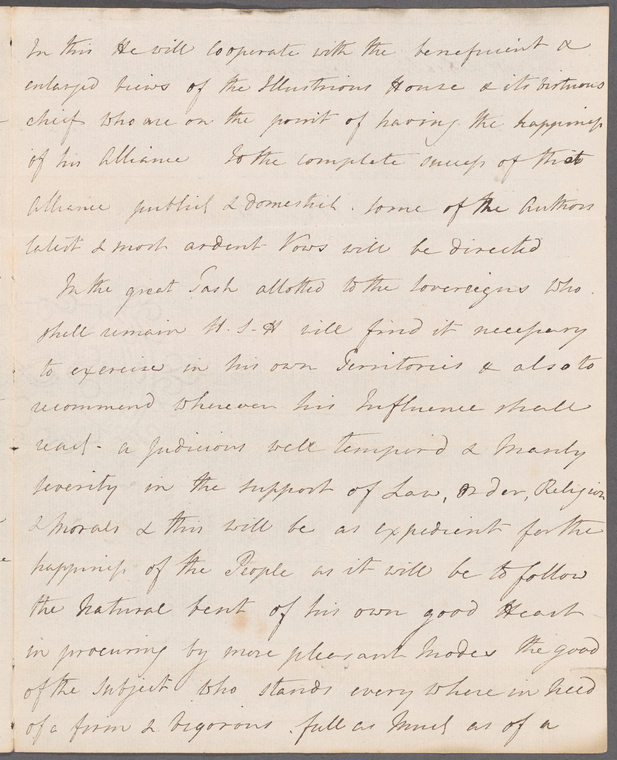 In this He will Cooperate with the beneficient &
enlarged views of the Illustrious House & its virtuous
chief who are on the point of having the happiness
of his Alliance To the complete success of that
Alliance publick & domestick. some of the Authors
latest & most ardent Vows will be directed
In the great Task allotted to the Sovereigns who
shall remain H. S. H will find it necessary
to exercise in his own Territories & also to
recommend wherever his Influence shall
reach a Judicious well temper'd & Manly
severity in the support of Law, Order, Religion
& morals & this will be as expedient for the
happiness of the People as it will be to follow
the Natural bent of his own good Heart
in procuring by more pleasant Modes the good
of the Subject who stands every where in Need
of a firm & vigorous full as Much as of a